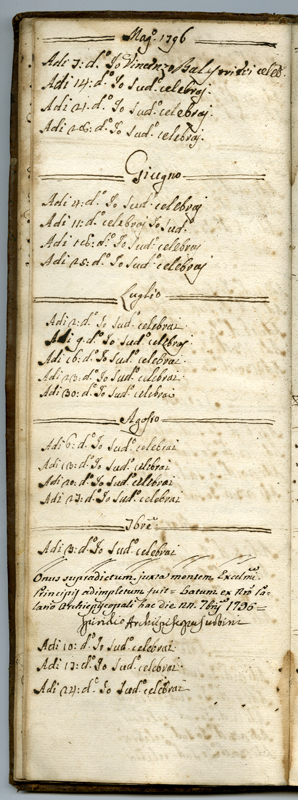 Mag.º 1796
Adi 7: d.º Io Vincenzo celeb.
Adi 14: d.º Io Sud.º celebraj.
Adi 21: d.º Io Sud.º celebraj.
Adi 28: d.º Io Sud.º celebraj.
Giugno
Adi 4: d.º Io Sud.º celebraj
Adi 11: d.º celebraj Io Sud.º
Adi 18: d.º Io Sud.º celebraj
Adi 25: d.º Io Sud.º celebraj
Luglio
Adi 2: d.º Io Sud.º celebrai
Adi 9: d.º Io Sud.º celebraj
Adi 16: d.º Io Sud.º celebrai
Adi 23: d.º Io Sud.º celebrai
Adi 30: d.º Io Sud.º celebrai
Agosto
Adi 6: d.º Io Sud.º celebrai
Adi 13: d.º Io Sud.º celebrai
Adi 20: d.º Io Sud.º celebrai
Adi 27: d.º Io Sud.º celebrai
7bre
Adi 3: d.º Io Sud.º celebrai
Onus supradictum juxta mentem Excelmi
Principis adimpletum fuit= Datum ex Nro Pa-
latio Archiepiscopali hac die 7bris 1796=
Archiepiscopus
Adi 10: d.º Io Sud.º celebrai
Adi 17: d.º Io Sud.º celebrai
Adi 24: d.º Io Sud.º celebrai